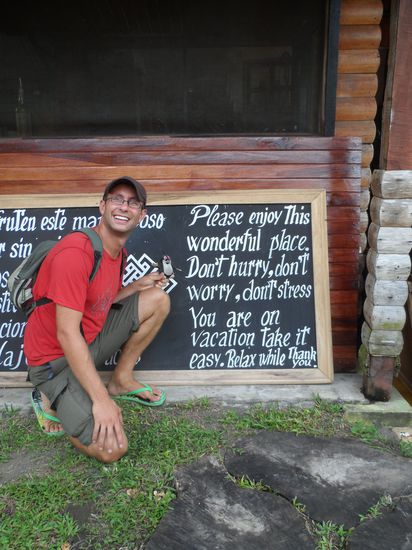 fruTen este
sin
Please enjoy This
wonderful place.
Don't hurry, don't
worry, don't stress
You are on
vacation take it
easy. Relax while Thank
you